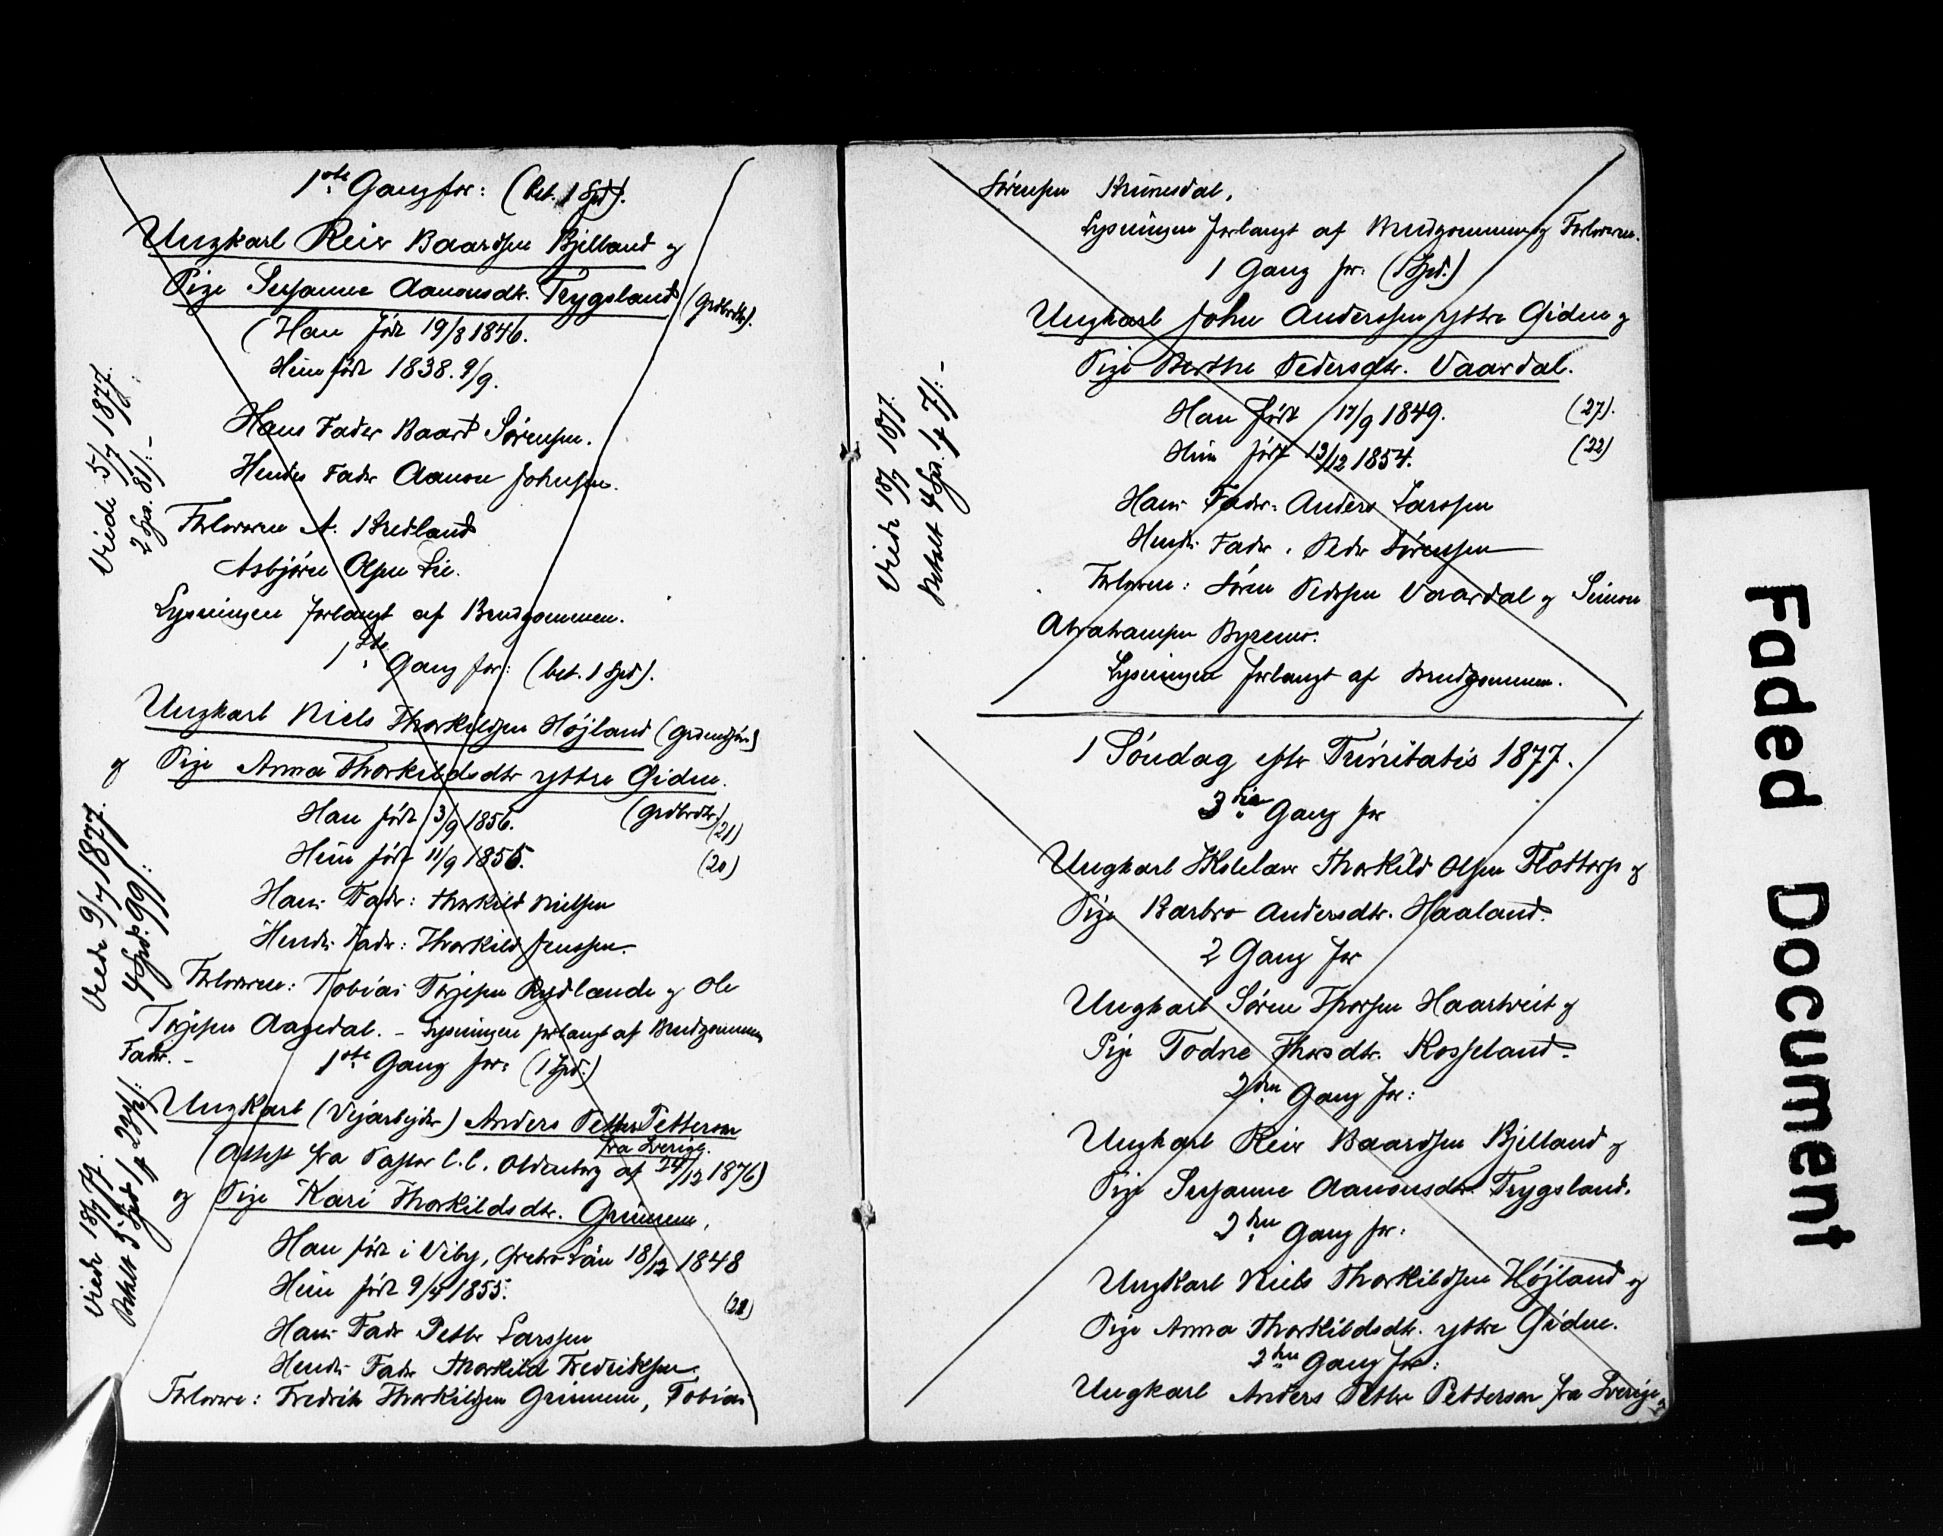 1ste Gang for: (bet. 1 Spd).
Ungkarl Reier Baardsen Bjelland og
Pige Susanne Aanonsdtr. Trygsland (Grdbrdtr).
(Han født 19/8 1846.
Hun født 1838. 9/9.
Hans Fader Baard Sørensen.
Hendes Fader Aanon Johnsen.
Forlovere A. Bredland
Asbjørn Olsen Lie.
Lysningen forlangt af Brudgommen.
Viede 5/7 1877.
2 Spd. 81/:-
1ste Gang for: (bet. 1 Spd).
Ungkarl Niels Thorkildsen Højland
og Pige Anna Thorkildsdtr yttre Øidne.
(Grdbrdtr.)
Han født 3/9 1856. (21)
Hun født 11/9 1856. (20)
Hans Fader: Thorkild Nielsen
Hendes Fader: Thorkild Jenssen.
Forlovere: Tobias Terjesen Rydlende og Ole
Terjesen Aagedal. - Lysningen forlangt af Brudgommens
Fader. -
Viede 9/7 1877.
4 Spd. 99/:
1ste Gang for: (1 Spd.)
Ungkarl (Vejarbejder) Anders Petter Petterson
fra Sverige.
(Attest fra Pastor C. C. Oldenborg af 24/12 1876)
og Pige Kari Thorkildsdtr. Grimnem,
Han født i Viby, Ørebro Län 18/12 1848
Hun født 9/4 1855.
Hans Fader Petter Larssen
Hendes Fader Thorkild Fredriksen.
Forlovere: Fredrik Thorkildsen Grimnem, Tobias
Viede 18/7 77.
Betalt 5 Spd 1 # 23/:
Sørensen Kunesdal.
Lysningen forlangt af Brudgommen og Forloveren.
1 Gang for: (1 Spd.)
Ungkarl John Anderssen yttre Øidne og
Pige Berthe Pedersdtr. Vaardal.
Han født 17/9 1849. (27).
Hun født 13/12 1854. (22)
Hans Fader: Anders Larssen
Hendes Fader: Peder Sørenssen
Forlovere: Søren Pedersen Vaardal og Simon
Abrahamsen Byremo.
Lysningen forlangt af Brudgommen.
Viede 18/7 1877.
Betalt 4 Spd. 4 # 7/:-
1 Søndag efter Trinitatis 1877.
3die Gang for
Ungkarl Skolelærer Thorkild Olsen Flottorp og
Pige Barbro Andersdtr. Haaland.
2 Gang for
Ungkarl Søren Thorsen Haartveit og
Pige Todne Thorsdtr. Rosseland.
2den Gang for:
Ungkarl Reier Baardsen Bjelland og
Pige Susanne Aanonsdtr Trygsland.
2den Gang for:
Ungkarl Niels Thorkildsen Højland og
Pige Anna Thorkildsdtr. yttre Øidne.
2den Gang for:
Ungkarl Anders Petter Petterson fra Sverige
Faded Document